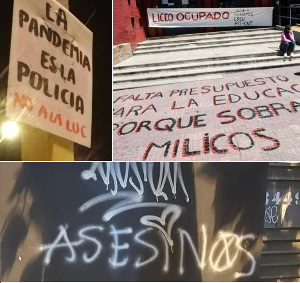 LA
PANDEMIA
ES LA
POLICIA
NO A LA LUC
LICEO OCUPADO
FALTA PRESUPUESTO
PARA LA EDUCAC
PORQUE SOBRA
MILICOS
ASESINOS